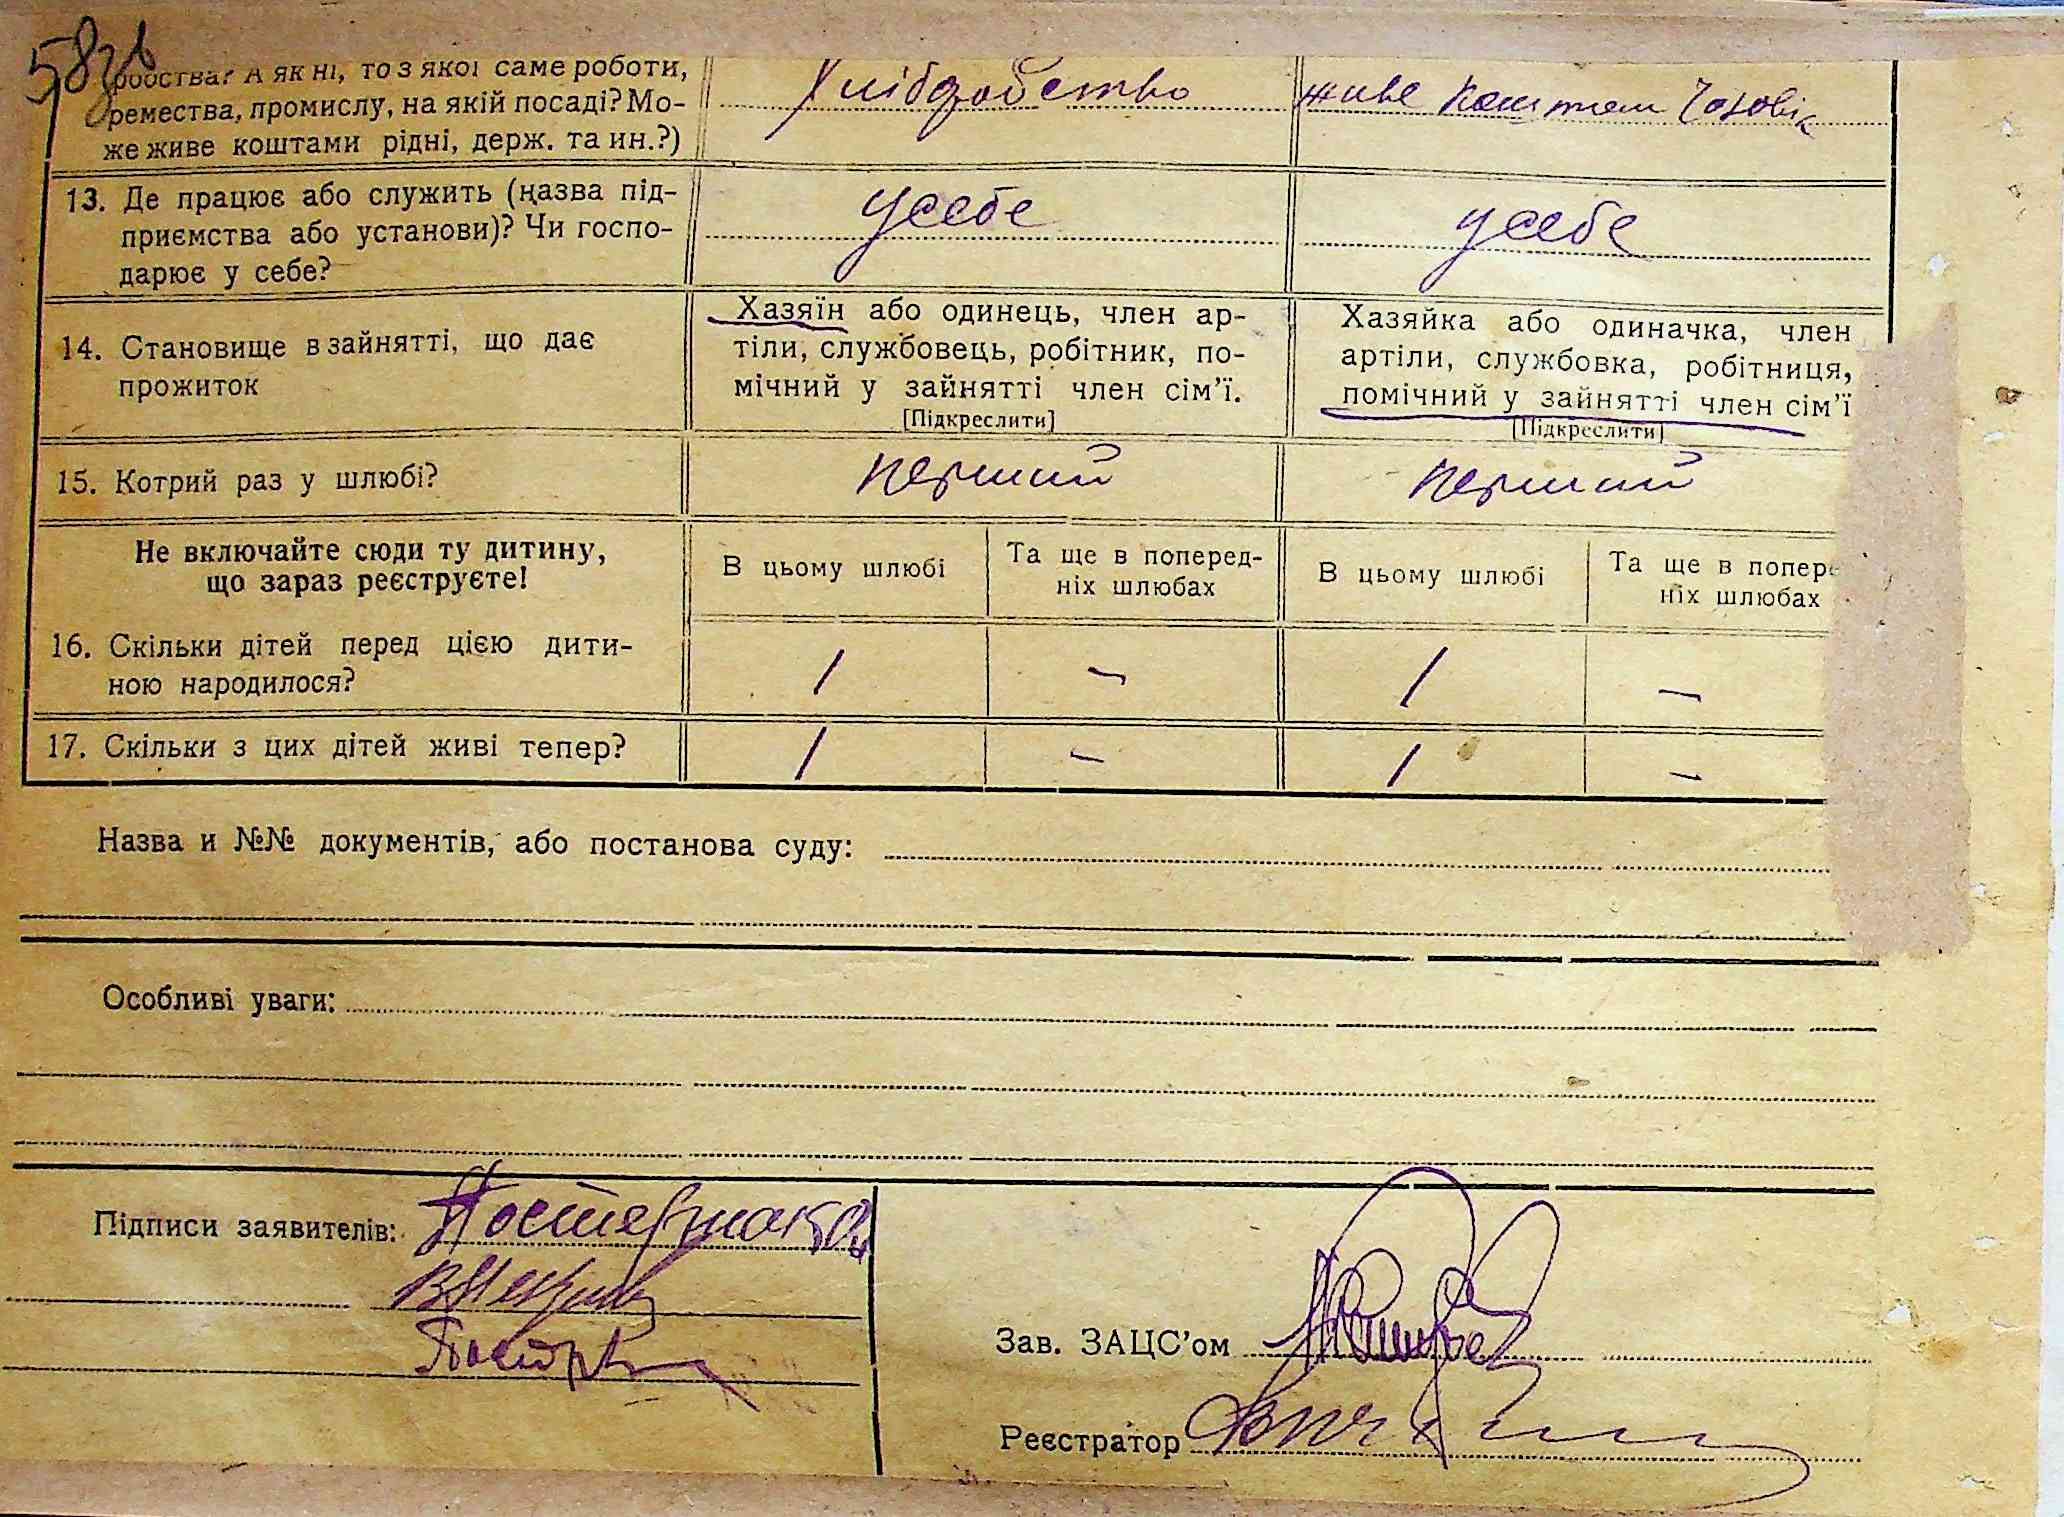 58зв
робства? А як ні, то з якої саме роботи,
ремества, промислу, на якій посаді? Мо-
же живе коштами рідні, держ. та ин.?)
Хлібробство
живе коштом Чоловік
13. Де працює або служить (назва під-
приємства або установи)? Чи госпо-
дарює у себе?
усебе
усебе
14. Становище в зайнятті, що дає
прожиток
Хазяїн або одинець, член ар-
тіли, службовець, робітник, по-
мічний у зайнятті член сім'ї.
[Підкреслити]
Хазяйка або одиначка, член
артіли, службовка, робітниця,
помічний у зайнятті член сім'ї
[Підкреслити]
15. Котрий раз у шлюбі?
перший
перший
Не включайте сюди ту дитину,
що зараз реєструєте!
В цьому шлюбі
Та ще в поперед-
ніх шлюбах
В цьому шлюбі
Та ще в попере
ніх шлюбах
16. Скільки дітей перед цією дити-
ною народилося?
1 – 1 –
17. Скільки з цих дітей живі тепер?
1 – 1 –
Назва и №№ документів, або постанова суду:
Особливі уваги:
Підписи заявителів:
Зав. ЗАЦС'ом
Реєстратор